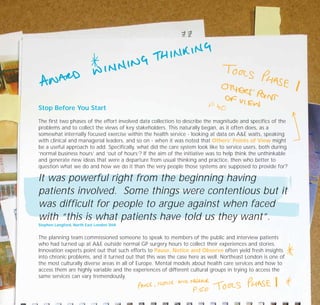 77
AWARD * WINNING THINKING
TOOLS PHASE 1
OTHERS' POINT
OF VIEW
P40
Stop Before You Start
The first two phases of the effort involved data collection to describe the magnitude and specifics of the
problems and to collect the views of key stakeholders. This naturally began, as it often does, as a
somewhat internally focused exercise within the health service - looking at data on A&E waits, speaking
with clinical and managerial leaders, and so on - when it was noted that Others' Points of View might
be a useful approach to add. Specifically, what did the care system look like to service users, both during
'normal business hours' and 'out of hours'? If the aim of the initiative was to help think the unthinkable
and generate new ideas that were a departure from usual thinking and practice, then who better to
question what we do and how we do it than the very people those systems are supposed to provide for?
It was powerful right from the beginning having
patients involved. Some things were contentious but it
was difficult for people to argue against when faced
with "this is what patients have told us they want".
Stephen Langford, North East London StHA
The planning team commissioned someone to speak to members of the public and interview patients
who had turned up at A&E outside normal GP surgery hours to collect their experiences and stories.
Innovation experts point out that such efforts to Pause, Notice and Observe often yield fresh insights
into chronic problems, and it turned out that this was the case here as well. Northeast London is one of
the most culturally diverse areas in all of Europe. Mental models about health care services and how to
access them are highly variable and the experiences of different cultural groups in trying to access the
same services can vary tremendously.
PAUSE, NOTICE AND OBSERVE
TOOLS PHASE 1 *